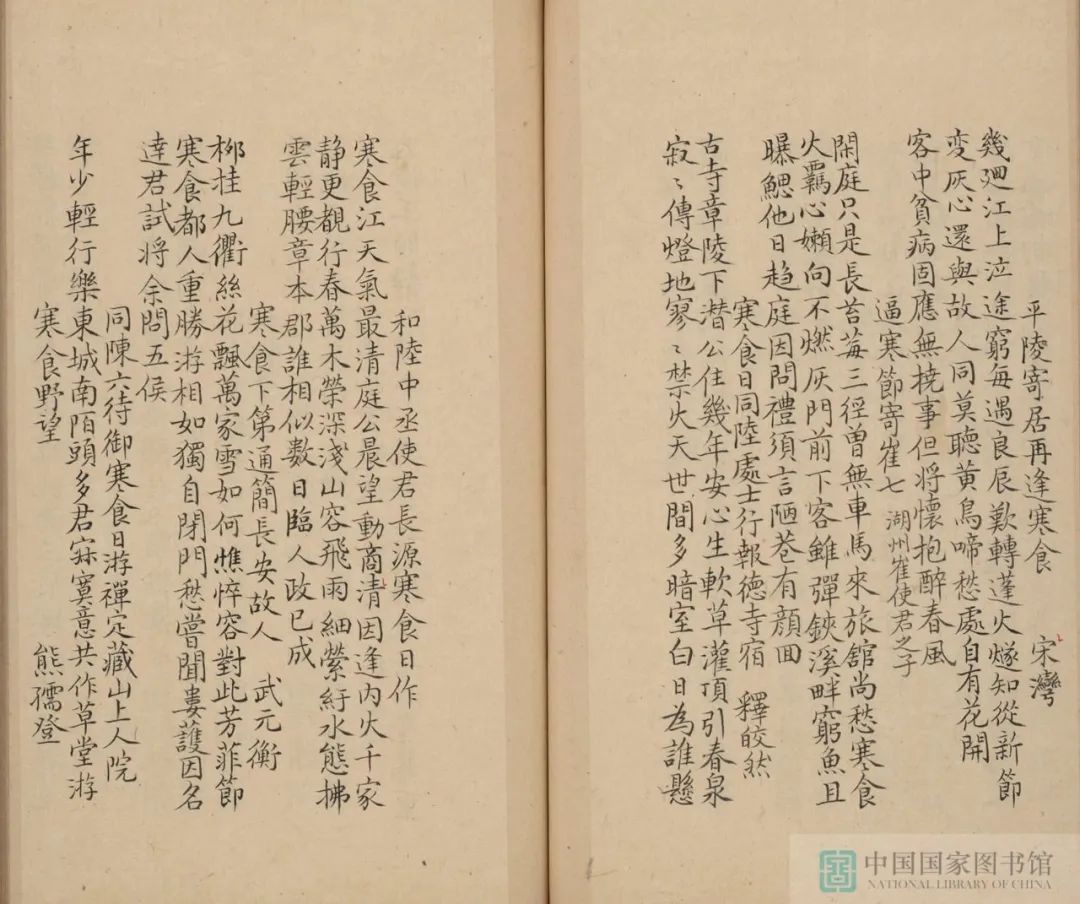 平陵寄居再逢寒食　宋灣
幾迴江上泣途窮每遇良辰歎轉蓬火燧知從新節
変灰心還與故人同莫聽黄鳥啼愁處自有花開
客中貧病固應無撓事但将懐抱醉春風
逼寒節寄崔七 湖州崔使君之子
閑庭只是長苔莓三徑曽無車馬來旅舘尚愁寒食
火羈心嬾向不燃灰門前下客雖彈鋏溪畔窮魚且
曝鰓他日趍庭因問禮須言陋巷有顔回
寒食日同陸處士行報德寺宿　釋皎然
古寺章陵下潜公住幾年安心生軟草灌頂引春泉
寂〻傳燈地寥〻禁火天世間多暗室白日為誰懸
和陸中丞使君長源寒食日作
寒食江天氣最清庭公晨望動商清因逢内火千家
静更覩行春萬木榮深淺山容飛雨細縈紆水態拂
雲輕腰章本郡誰相似數日臨人政已成
寒食下第通簡長安故人　武元衡
柳挂九衢絲花飄萬家雪如何憔悴容對此芳菲節
寒食都人重勝游相如獨自閉門愁嘗聞婁護因名
達君試将余問五侯
同陳六待御寒食日游禪定藏山上人院
年少輕行樂東城南陌頭多君㝛寞意共作草堂游
寒食野望　熊孺登
中国国家图书馆
NATIONAL LIBRARY OF CHINA